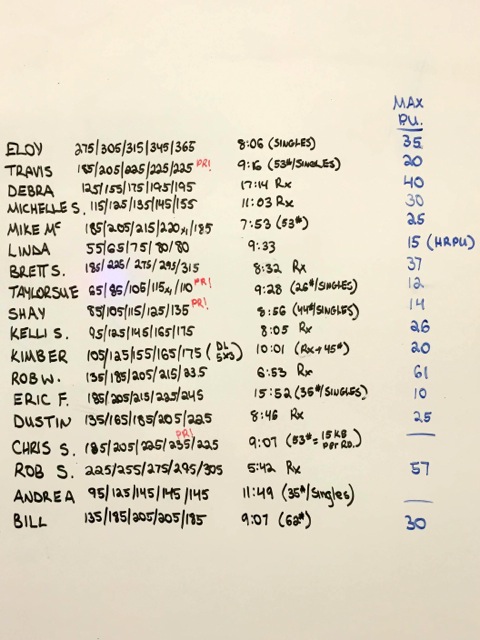 MAX
P.U.
ELOY 275/305/315/345/365 8:06 (SINGLES) 35
TRAVIS 185/205/225/225/225 PR! 9:16 (53#/SINGLES) 20
DEBRA 125/155/175/195/195 17:14 Rx 40
MICHELLE S. 115/125/135/145/155 11:03 Rx 30
MIKE Mc 185/205/215/220x1/185 7:53 (53#) 25
LINDA 55/65/75/80/80 9:33 15 (HRPU)
BRETT S. 185/225/275/295/315 8:32 Rx 37
TAYLORSUE 65/85/105/115x1/110 PR! 9:28 (26#/SINGLES) 12
SHAY 85/105/115/125/135 PR! 8:56 (44#/SINGLES) 14
KELLI S. 95/125/145/165/175 8:05 Rx 26
KIMBER 105/125/155/165/175 (DL 5x3) 10:01 (Rx+45#) 20
ROB W. 135/185/205/215/235 6:53 Rx 61
ERIC F. 185/205/215/225/245 15:52 (35#/SINGLES) 10
DUSTIN 135/165/185/205/225 8:46 Rx 25
CHRIS S. 185/205/225/235/225 PR! 9:07 (53# = 15 KB PER RD.) —
ROB S. 225/255/275/295/305 5:42 Rx 57
ANDREA 95/125/145/145/145 11:49 (35#/Singles) —
BILL 135/185/205/205/185 9:07 (62#) 30